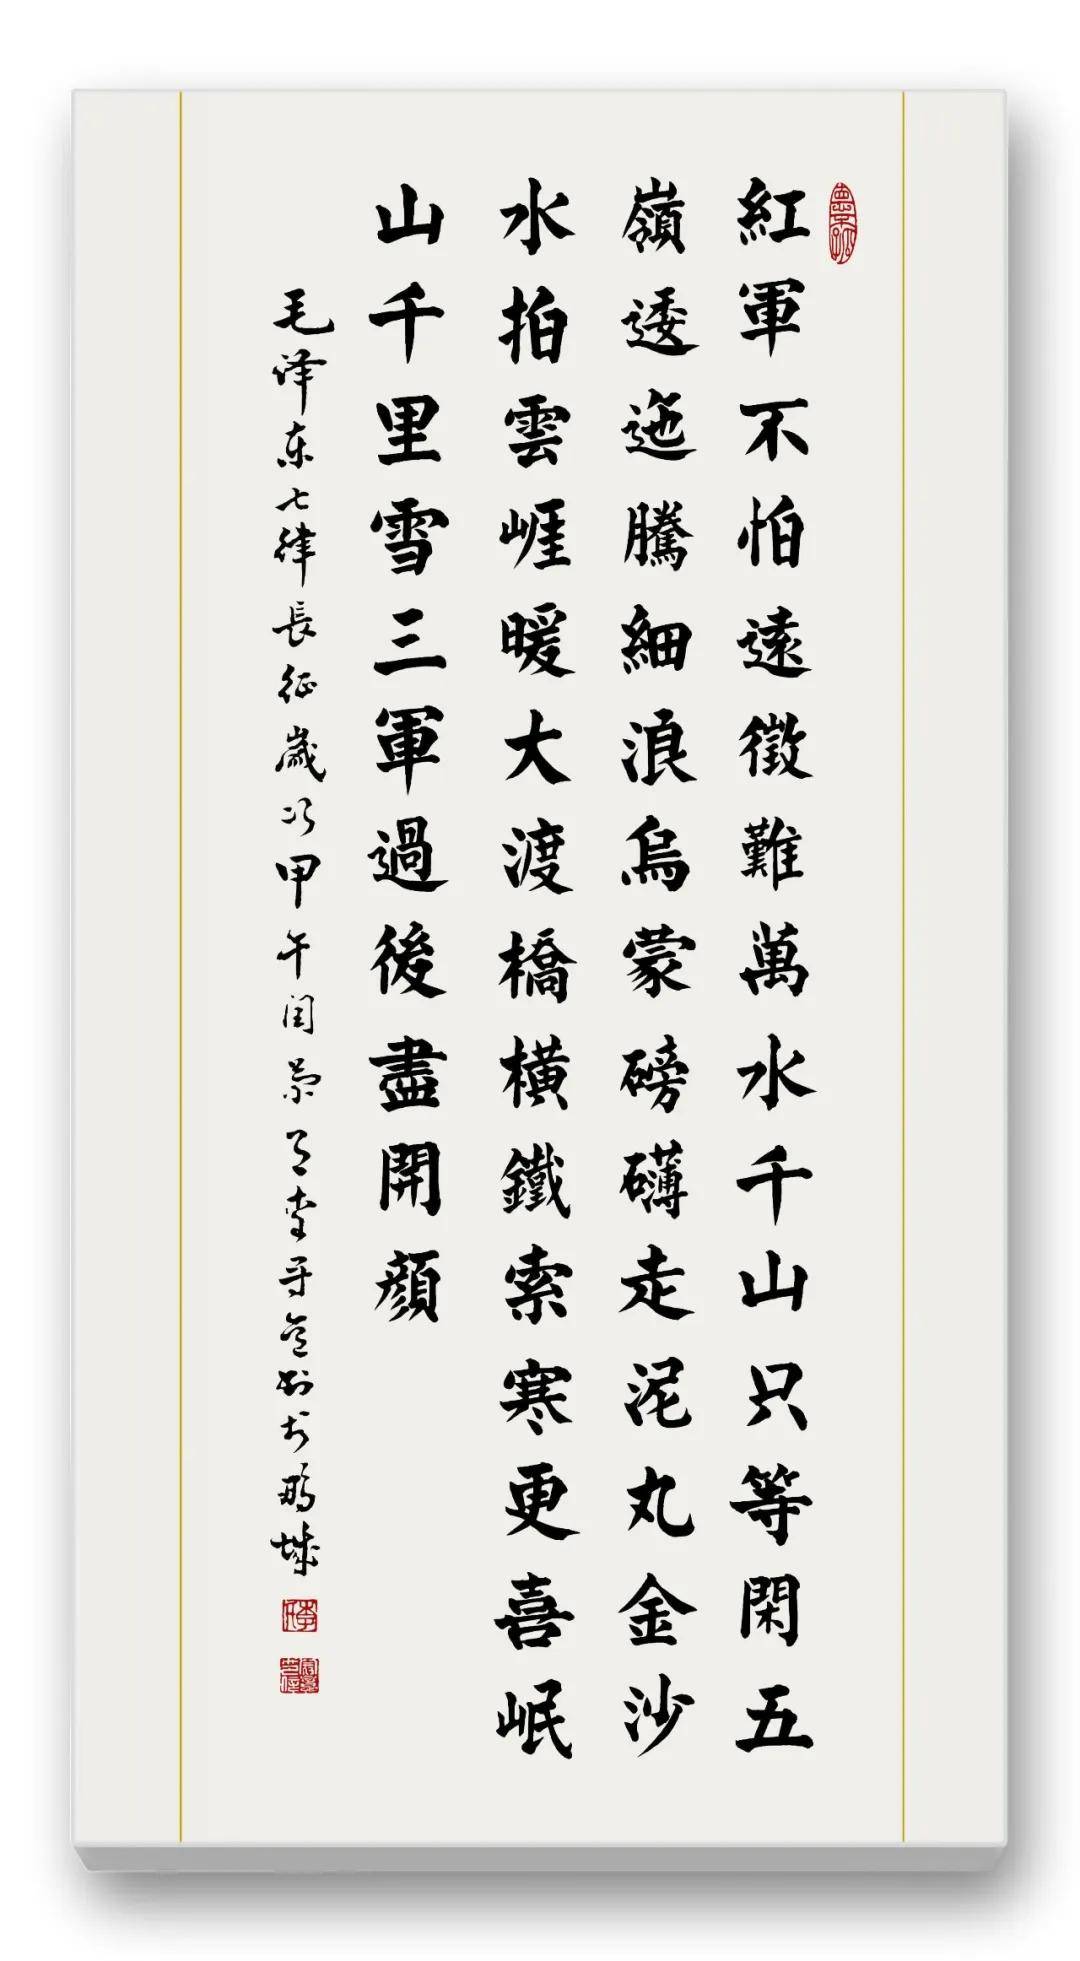 紅軍不怕遠徵難萬水千山只等閑五
嶺逶迤騰細浪烏蒙磅礴走泥丸金沙
水拍雲崕暖大渡橋橫鐵索寒更喜岷
山千里雪三軍過後盡開顏
毛泽东七律長征歲次甲午闰月书於鹏城